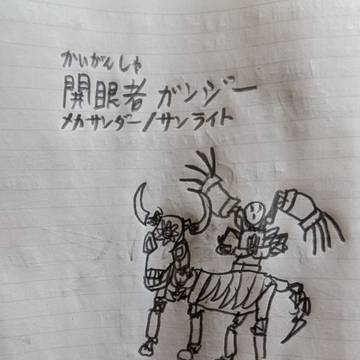 かいがんしゃ
開眼者 ガンジー
メカサンダー/サンライト